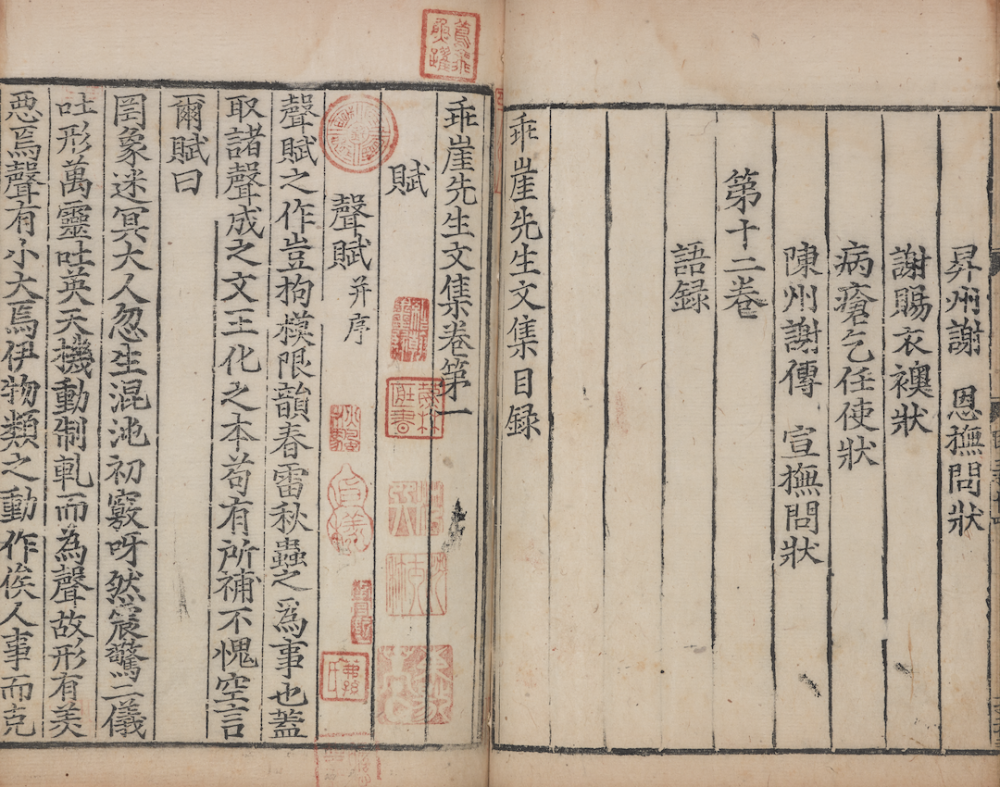 昇州謝　恩撫問狀
謝賜衣襖狀
病瘡乞任使狀
陳州謝傳　宣撫問狀
第十二卷
語録
乖崖先生文集目録
乖崖先生文集卷第一
賦
聲賦并序
聲賦之作豈拘模限韻春雷秋蟲之為事也蓋
取諸聲成之文王化之本苟有所補不愧空言
爾賦曰
罔象迷冥大人忽生混沌初竅呀然震驚二儀
吐形萬靈吐英天機動制軋而為聲故形有美
惡焉聲有小大焉伊物類之動作俟人事而克